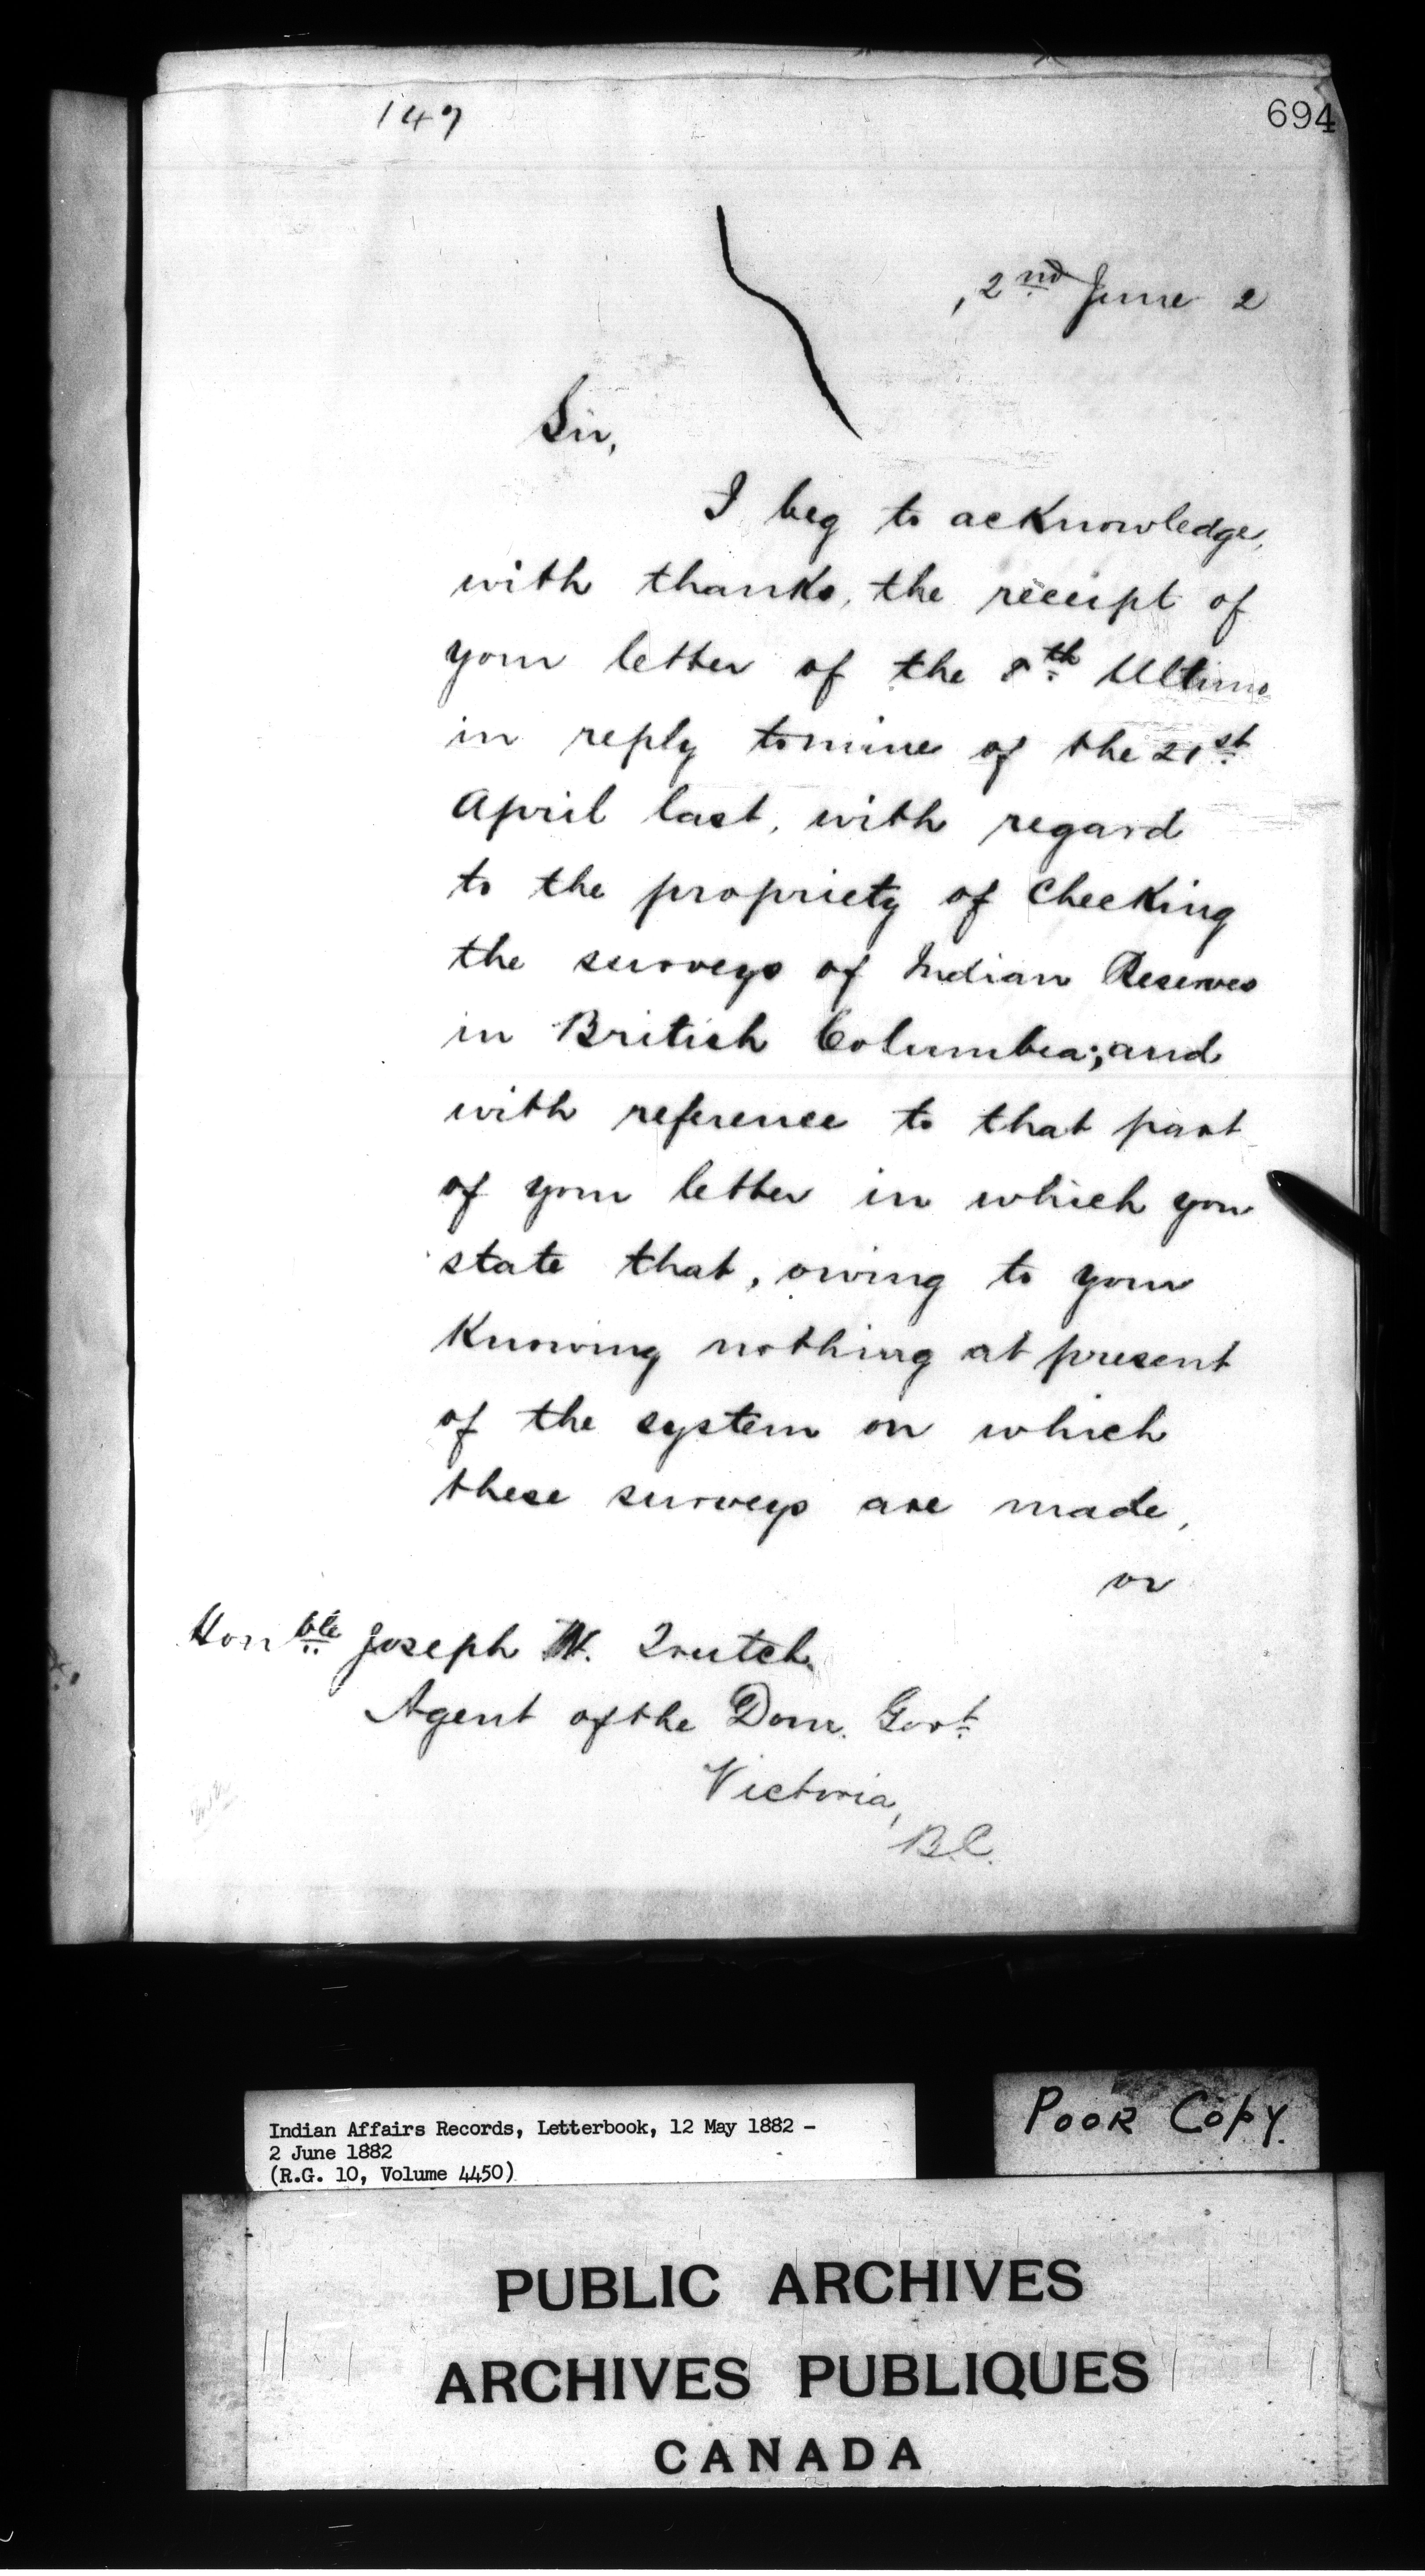 149
694
, 2nd June 2
Sir,
I beg to acknowledge,
with thanks, the receipt of
your letter of the 8th Ultimo
in reply to mine of the 21st
April last, with regard
to the propriety of checking
the surveys of Indian Reserves
in British Columbia; and
with reference to that part
of your letter in which you
state that, owing to your
Knowing nothing at present
of the system on which
these surveys are made,
or
Honble Joseph W. Trutch
Agent of the Dom. Govt
Victoria,
B.C.
Indian Affairs Records, Letterbook, 12 May 1882 –
2 June 1882
(R.G. 10, Volume 4450)
POOR COPY.
PUBLIC ARCHIVES
ARCHIVES PUBLIQUES
CANADA